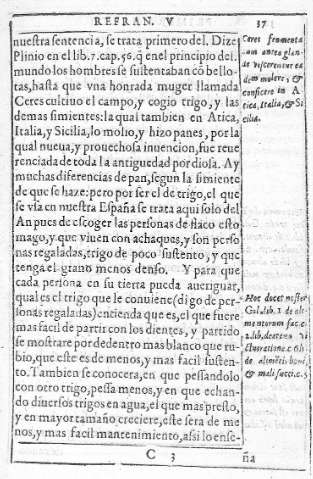 REFRAN. V
17
nuestra sentencia, se trata primero del. Dize
Plinio en el lib. 7. cap. 56. q̃ en el principio del
mundo los hombres se sustentaban cõ bello-
tas, hasta que vna honrada muger llamada
Ceres cultiuo el campo, y cogio trigo, y las
demas simientes: la qual tambien en Atica,
Italia, y Sicilia, lo molio, y hizo panes, por la
qual nueua, y prouechosa inuencion, fue reue
renciada de toda la antiguedad por diosa. Ay
muchas diferencias de pan, segun la simiente
de que se haze: pero por ser el de trigo, el que
se vsa en nuestra España se trata aqui solo del
An pues de escoger las personas de flaco esto
mago, y que viuen con achaques, y son perso
nas regaladas, trigo de poco sustento, y que
tenga el grano menos denso. Y para que
cada persona en su tierra pueda aueriguar,
qual es el trigo que le conuiene (digo de per-
sonas regaladas) entienda que es, el que fuere
mas facil de partir con los dientes, y partido
se mostrare por dedentro mas blanco que ru-
bio, que este es de menos, y mas facil susten-
to. Tambien se conocera, en que pessandolo
con otro trigo, pessa menos, y en que echan-
do diuersos trigos en agua, el que mas presto,
y en mayor tamaño creciere, este sera de me
nos, y mas facil mantenimiento, assi lo ense-
C 3
ña
Ceres frumenta
cum antea glan-
de vescerentur ea
dem molere, &
conficere in A
tica, Italia, & Si
cilia.
Hoc docet noster
Gal. lib. 1 de ali-
mentorum fac. c.
2. lib. de
c. 6. li.
de alimētis boni,
& mali succi. c. 5